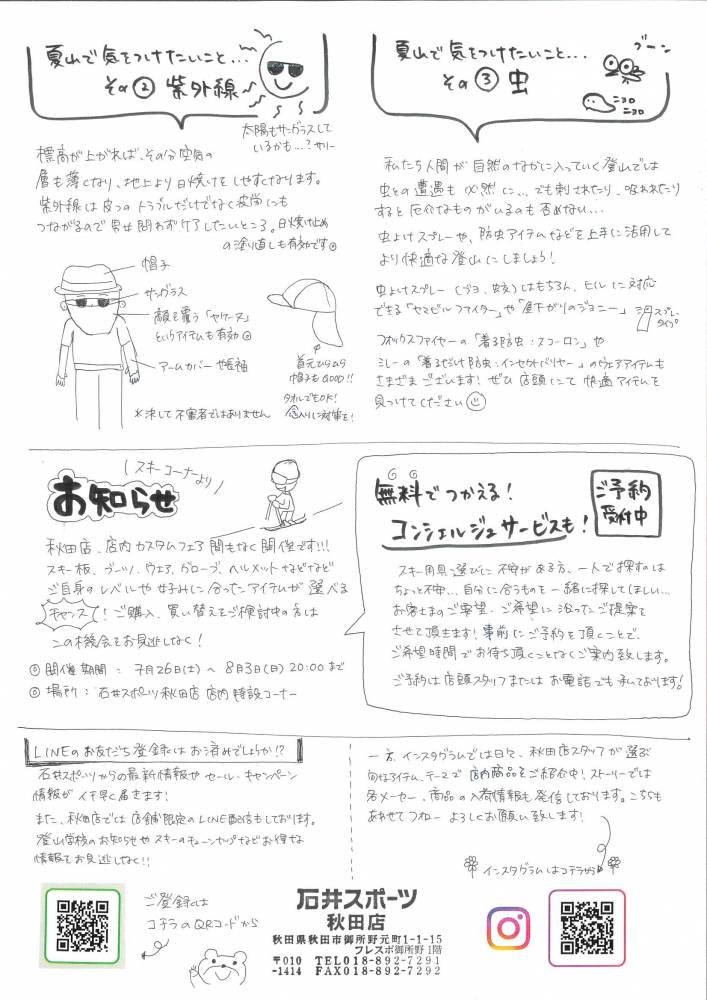 夏山で気をつけたいこと...
その② 紫外線
太陽もサングラスして
いるかも...? サリー
標高が上がれば、その分空気の
層も薄くなり、地上より日焼けをしやすくなります。
紫外線は皮フのトラブルだけでなく疲労にも
つながるので男女問わずケアしたいところ。日焼け止め
の塗り直しも有効です。
帽子
サングラス
顔を覆う「ヤケーヌ」
というアイテムも有効。
アームカバーや長袖
首元ひらひら
帽子もGOOD!!
タオルでもOK!
念入りに対策を!
*決して不審者ではありません
夏山で気をつけたいこと...
その③ 虫
ブーン
ニョロ
ニョロ
私たち人間が自然のなかに入っていく登山では
虫との遭遇も必然に...でも刺されたり、吸われたり
すると厄介なものがいるのも否めない...
虫よけスプレーや、防虫アイテムなどを上手に活用して
より快適な登山にしましょう!
虫よけスプレー(ブヨ、蚊)はもちろん、ヒルに対応
できる「ヤマビルファイター」や「昼下がりのジョニー」
スプレー
タイプ
フォックスファイヤーの「着る防虫:スコーロン」や
ミレーの「着るだけ防虫:インセクトバリヤー」のウェアアイテムも
さまざまございます!ぜひ店頭にて快適アイテムを
見つけてください
スキーコーナーより
お知らせ
秋田店、店内カスタムフェア間もなく開催です!!!
スキー板、ブーツ、ウェア、グローブ、ヘルメットなどなど
ご自身のレベルや好みに合ったアイテムが選べる
チャンス!ご購入、買い替えをご検討中の方は
この機会をお見逃しなく!
◎開催期間: 7月26日(土)~8月3日(日)20:00まで
◎場所:石井スポーツ秋田店 店内特設コーナー
無料でつかえる!
コンシェルジュサービスも!
ご予約
受付中
スキー用具選びに不安がある方、一人で探すのは
ちょっと不安...自分に合うものを一緒に探してほしい...
お客さまのご要望、ご希望に沿ったご提案を
させて頂きます!事前にご予約を頂くことで、
ご希望時間でお待ち頂くことなくご案内致します。
ご予約は店頭スタッフまたはお電話でも承っております!
LINEのお友だち登録はお済みでしょうか!?
石井スポーツからの最新情報やセール、キャンペーン
情報がイチ早く届きます!
また、秋田店では店舗限定のLINE配信もしております。
登山学校のお知らせやスキーのチューンナップなどお得な
情報をお見逃しなく!!
一方、インスタグラムでは日々、秋田店スタッフが選ぶ
旬なアイテム、テーマで店内商品をご紹介中!ストーリーでは
各メーカー、商品の入荷情報も発信しております。こちらも
あわせてフォローよろしくお願い致します!
インスタグラムはコチラから
ご登録は
コチラのQRコードから
石井スポーツ
秋田店
秋田県秋田市御所野元町1-1-15
フレスポ御所野1階
〒010 TEL018-892-7291
-1414 FAX018-892-7292